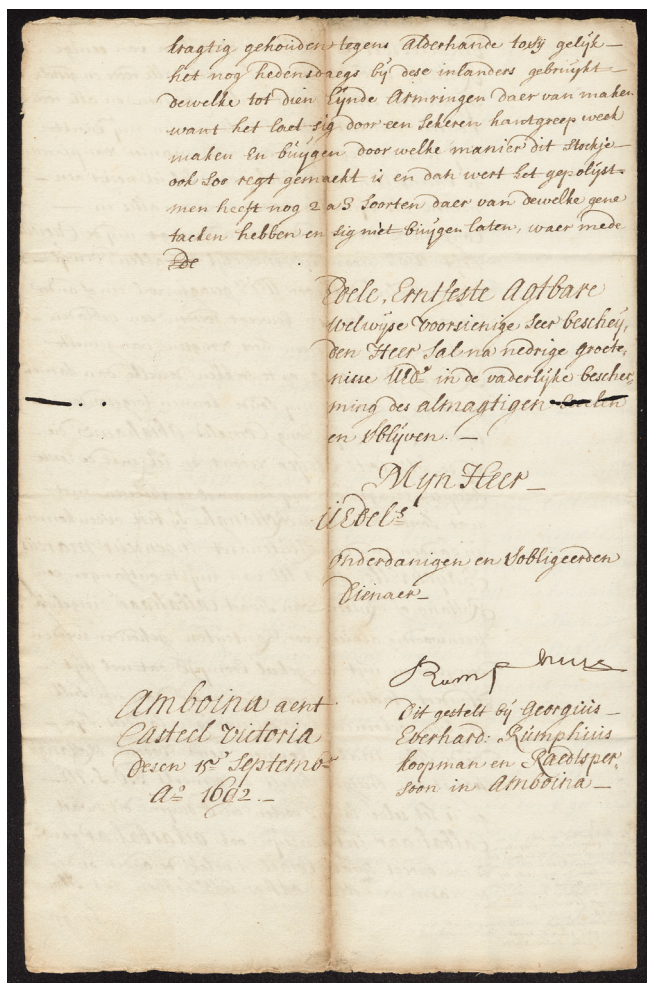 kragtig gehouden tegens alderhande toverij gelijk
het nog hedensdaegs bij dese inlanders gebruijkt
dewelke tot dien Eijnde Armringen daer van maken
want het laet sig door een sekeren hantgreep week
maken En buijgen door welke manier dit stockje
ook soo regt gemaekt is en dan wert het gepolijst
men heeft nog 2 a 3 soorten daer van dewelke gene
tacken hebben en sig niet buijgen laten, waer mede
Edele, Erntfeste Agtbare
welwijse voorsienige seer beschey,
den Heer sal na nedrige groete,
nisse UEds in de vaderlijke bescher,
ming des almagtigen
en Vblijven. —
Myn Heer —
UEdels
onderdanigen en Vobligeerden
Dienaer —
Rumphius
Amboina aent
Casteel Victoria
Desen 15e Septembr
Ao 1692. —
Dit gestelt bij Georgius
Everhard: Rumphius
koopman en Raedtsper,
soon in Amboina —